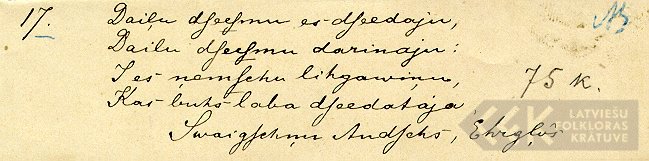 17. Daiļu dseesmu es dseedaju,
Daiļu dseesmu darinaju:
I es ņemschu lihgawiņu,
Kas buhs laba dseedataja 75 k.
Swaigschņu Andschs, Ehrgļôs
LATVIEŠU
FOLKLORAS
KRĀTUVE